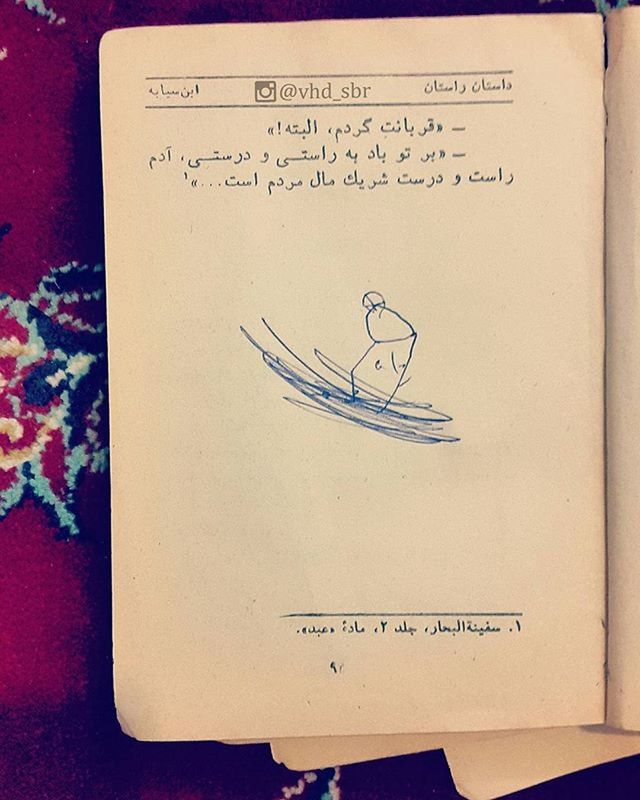 داستان راستان
@vhd_sbr
ابن سیابه
ـ «قربانت گردم، البته!»
ـ «بر تو باد به راستــی و درستــی، آدم
راست و درست شریك مال مردم است...»۱
۱. سفینةالبحار، جلد ۲، مادهٔ «عبد».